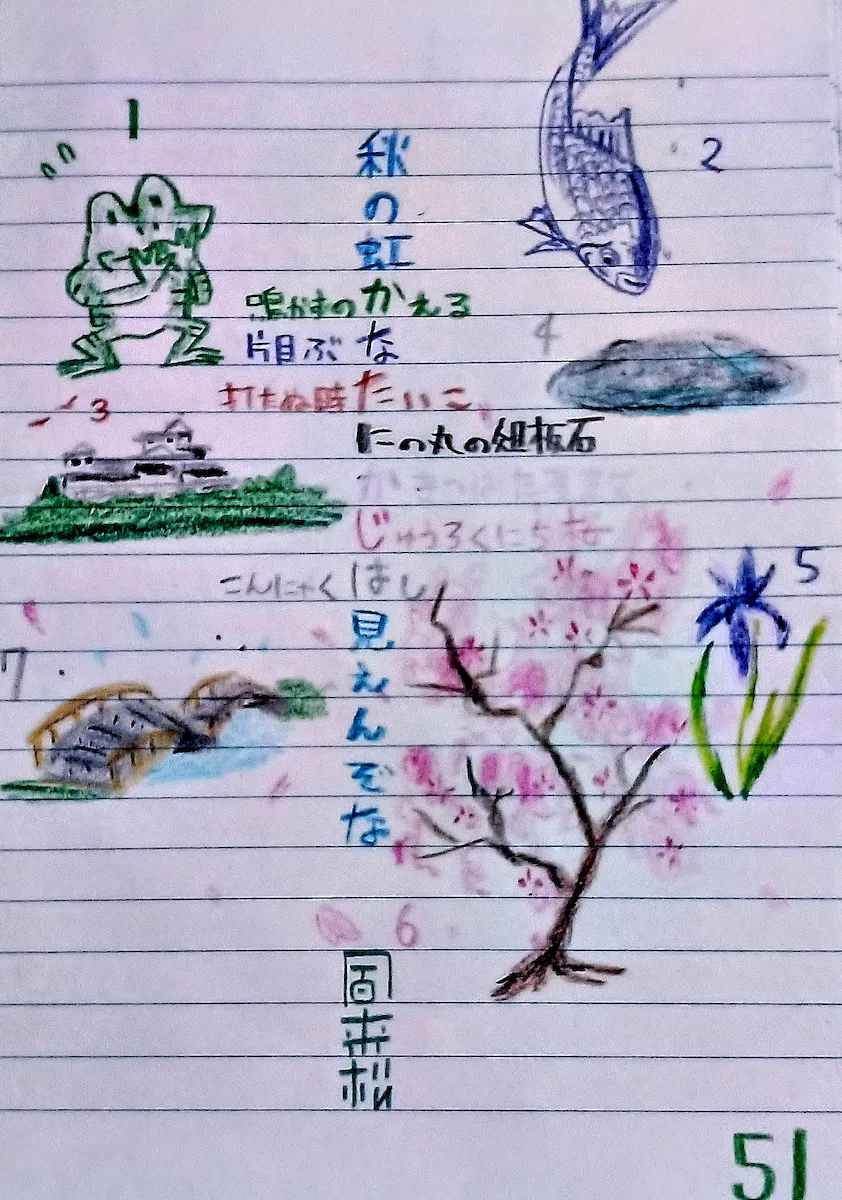 1
2
秋の虹
鳴かずのかえる
4
片目ぶな
打たぬ時たいこ
3
にの丸の俎板石
かきつばた
じゅうろくにち桜
5
こんにゃくはし
見えんぞな
7
6
51